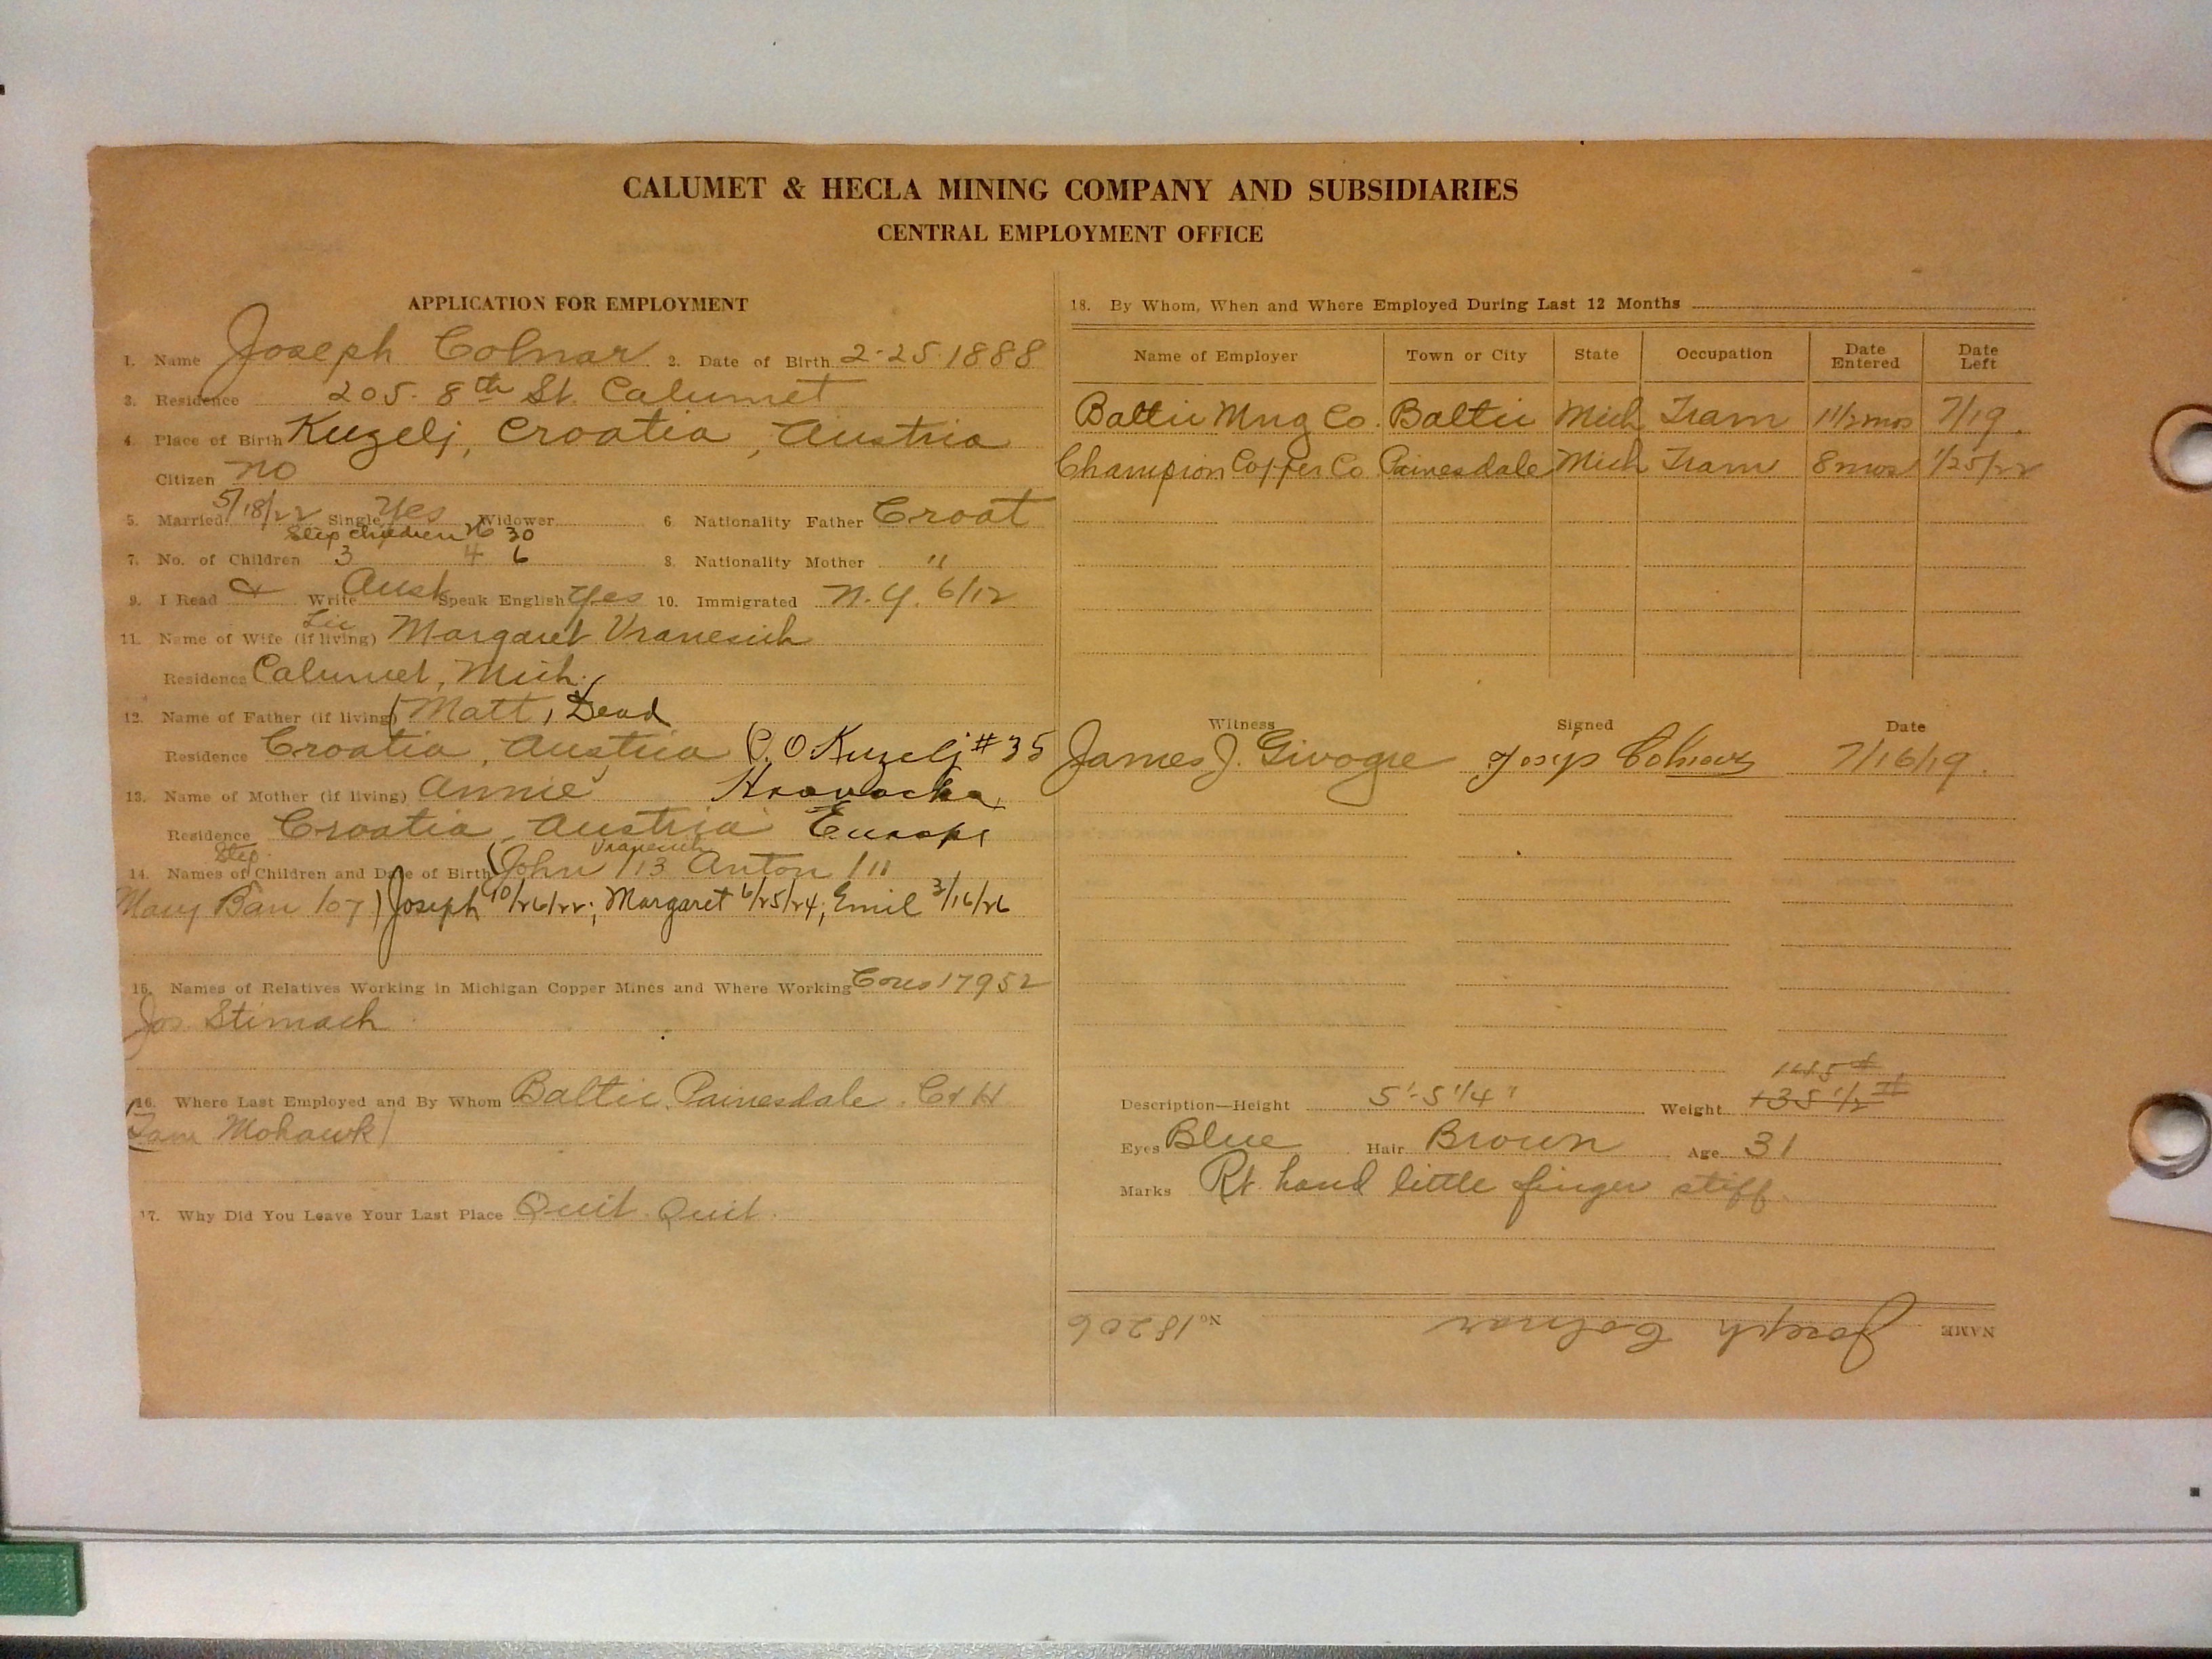 CALUMET & HECLA MINING COMPANY AND SUBSIDIARIES
CENTRAL EMPLOYMENT OFFICE
APPLICATION FOR EMPLOYMENT
1. Name Joseph Colnar 2. Date of Birth 2-25-1888
3. Residence 205-8th St. Calumet
4. Place of Birth Kuzelj, Croatia, Austria
Citizen no
5. Married 5/18/22 Single Yes Widower 6. Nationality Father Croat
Step children 26 30
7. No. of Children 3 4 6 8. Nationality Mother "
9. I Read & Write Aust Speak English Yes 10. Immigrated N.Y. 6/12
11. Name of Wife (if living) Margaret Vranesich
Residence Calumet, Mich.
12. Name of Father (if living) (Matt, Dead
Residence Croatia, Austria P.O Kuzelj #35
13. Name of Mother (if living) Annie Hravacka
Residence Croatia, Austria Europe
Step Vranesich
14. Names of Children and Date of Birth (John /13 Anton /11
Mary Ban /07) Joseph 10/26/22; Margaret 6/25/24; Emil 3/16/26
15. Names of Relatives Working in Michigan Copper Mines and Where Working Cous 17952
Jos. Stimach
16. Where Last Employed and By Whom Baltic. Painesdale. C & H
Mohawk)
17. Why Did You Leave Your Last Place Quit. Quit.
18. By Whom, When and Where Employed During Last 12 Months
Name of Employer Town or City State Occupation Date Entered Date Left
Baltic Mng Co. Baltic Mich Tram 11 1/2 mos 7/19.
Champion Copper Co Painesdale Mich Tram 8 mos 1/25/22
Witness Signed Date
James J. Givogre Josip Colnar 7/16/19.
145 #
Description—Height 5'-5 1/4" Weight 135 1/2 #
Eyes Blue Hair Brown Age 31
Marks Rt. hand little finger stiff.
NAME Joseph Colnar No 18206